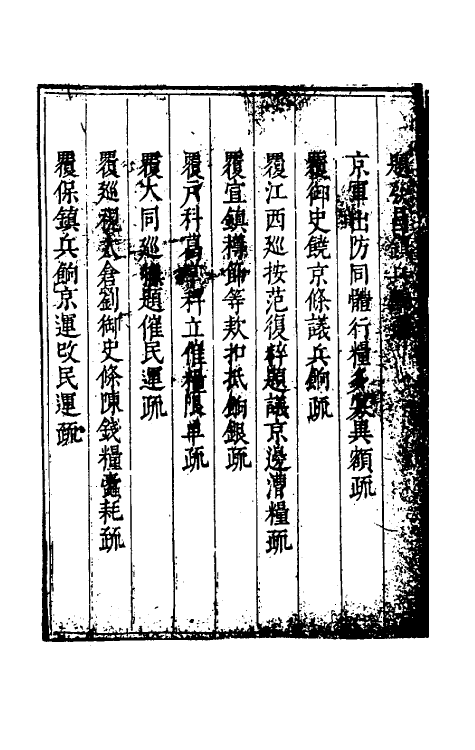 題
京軍出防同體行糧多寡異額疏
覆御史饒京條議兵餉疏
覆江西巡按范復粹題議京邊漕糧疏
覆宣鎮撙節等欵扣抵餉銀疏
覆戶科葛科立催糧限單疏
覆大同巡題催民運疏
覆巡視太倉劉御史條陳錢糧蠹耗疏
覆保鎮兵餉京運改民運疏